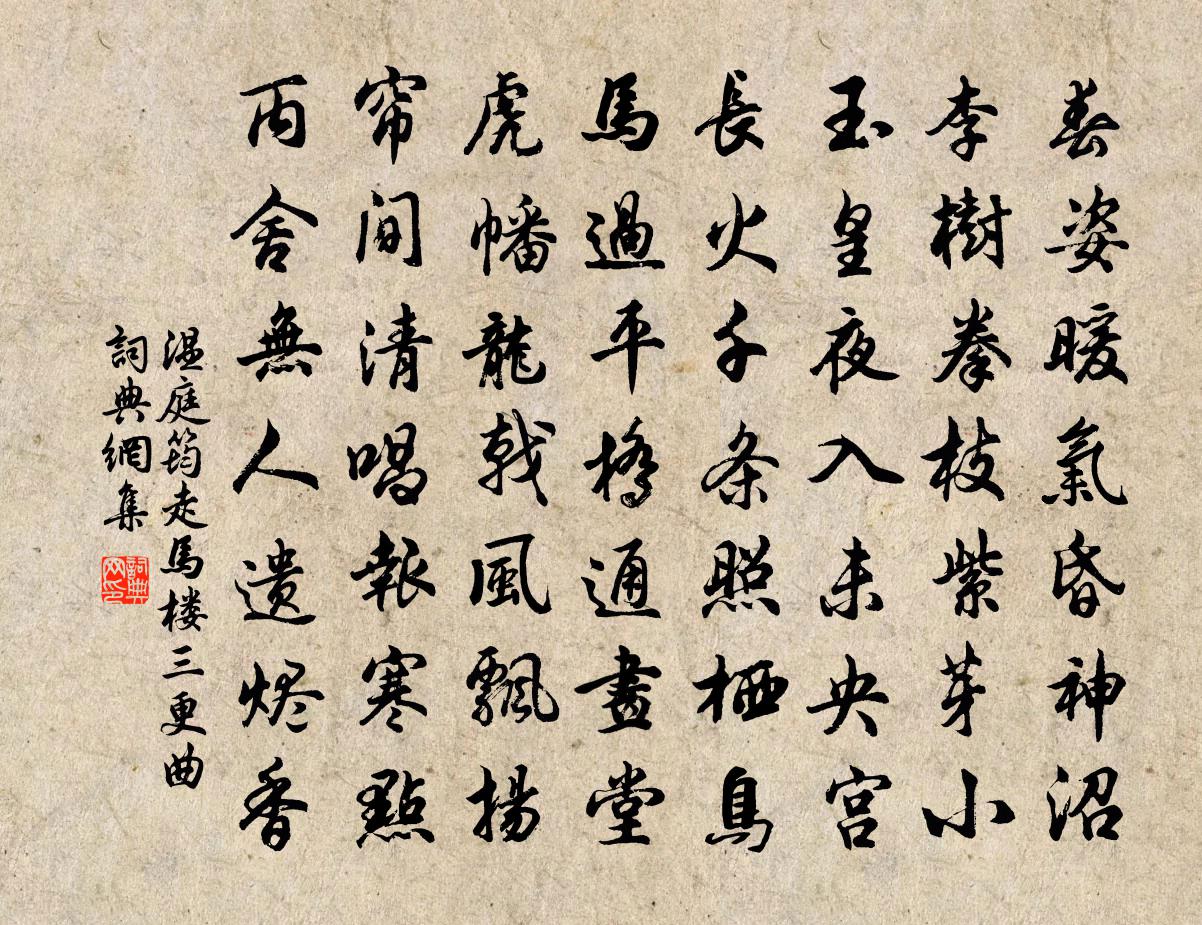 春姿暖氣昏神沼
李樹拳枝紫芽小
玉皇夜入未央宮
長火千条照栖鳥
馬過平橋通畫堂
虎幡龍戟風飄揚
帘间清唱報寒點
丙舍無人遗烬香
温庭筠走馬楼三更曲
詞典網集
詞典网印